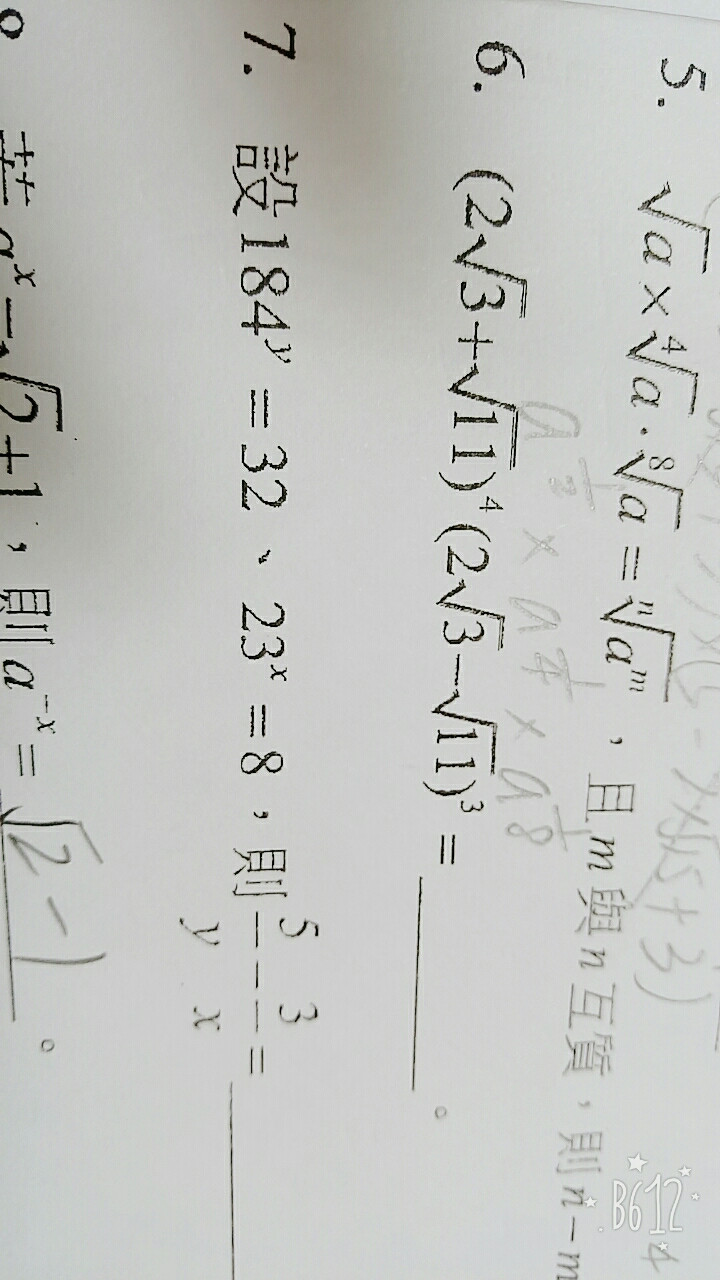 5. √a × ⁴√a · ⁸√a = ⁿ√aᵐ，且m與n互質，則n－m
a^1/2 × a^1/4 × a^1/8
6. (2√3+√11)⁴(2√3−√11)³ = ______。
7. 設184ʸ = 32、23ˣ = 8，則5/y − 3/x = ______
若aˣ = √2+1，則a⁻ˣ = √2 − 1。
B612